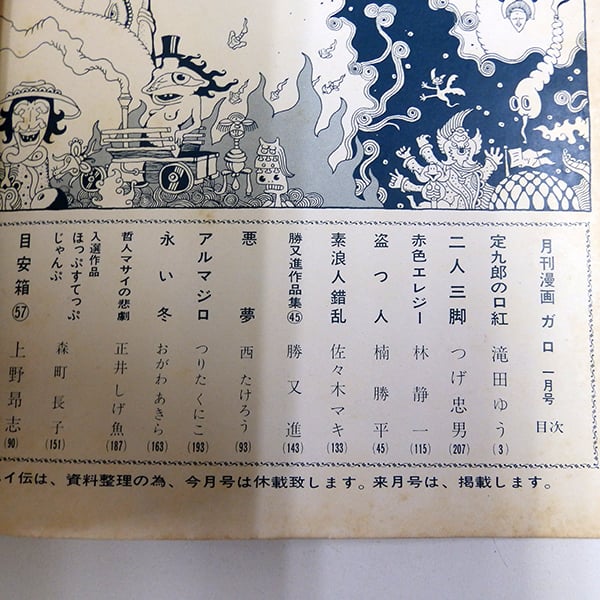 月刊漫画 ガロ 一月号 目次
定九郎の口紅 滝田ゆう (3)
二人三脚 つげ忠男 (207)
赤色エレジー 林静一 (115)
盗つ人 楠勝平 (45)
素浪人錯乱 佐々木マキ (133)
勝又進作品集㊺ 勝又進 (143)
悪夢 西たけろう (93)
アルマジロ つりたくにこ (193)
永い冬 おがわあきら (163)
哲人マサイの悲劇 正井しげ魚 (187)
入選作品
ほっぷすてっぷ
じゃんぷ 森町長子 (151)
目安箱 57 上野昂志 (90)
イ伝は、資料整理の為、今月号は休載致します。来月号は、掲載します。